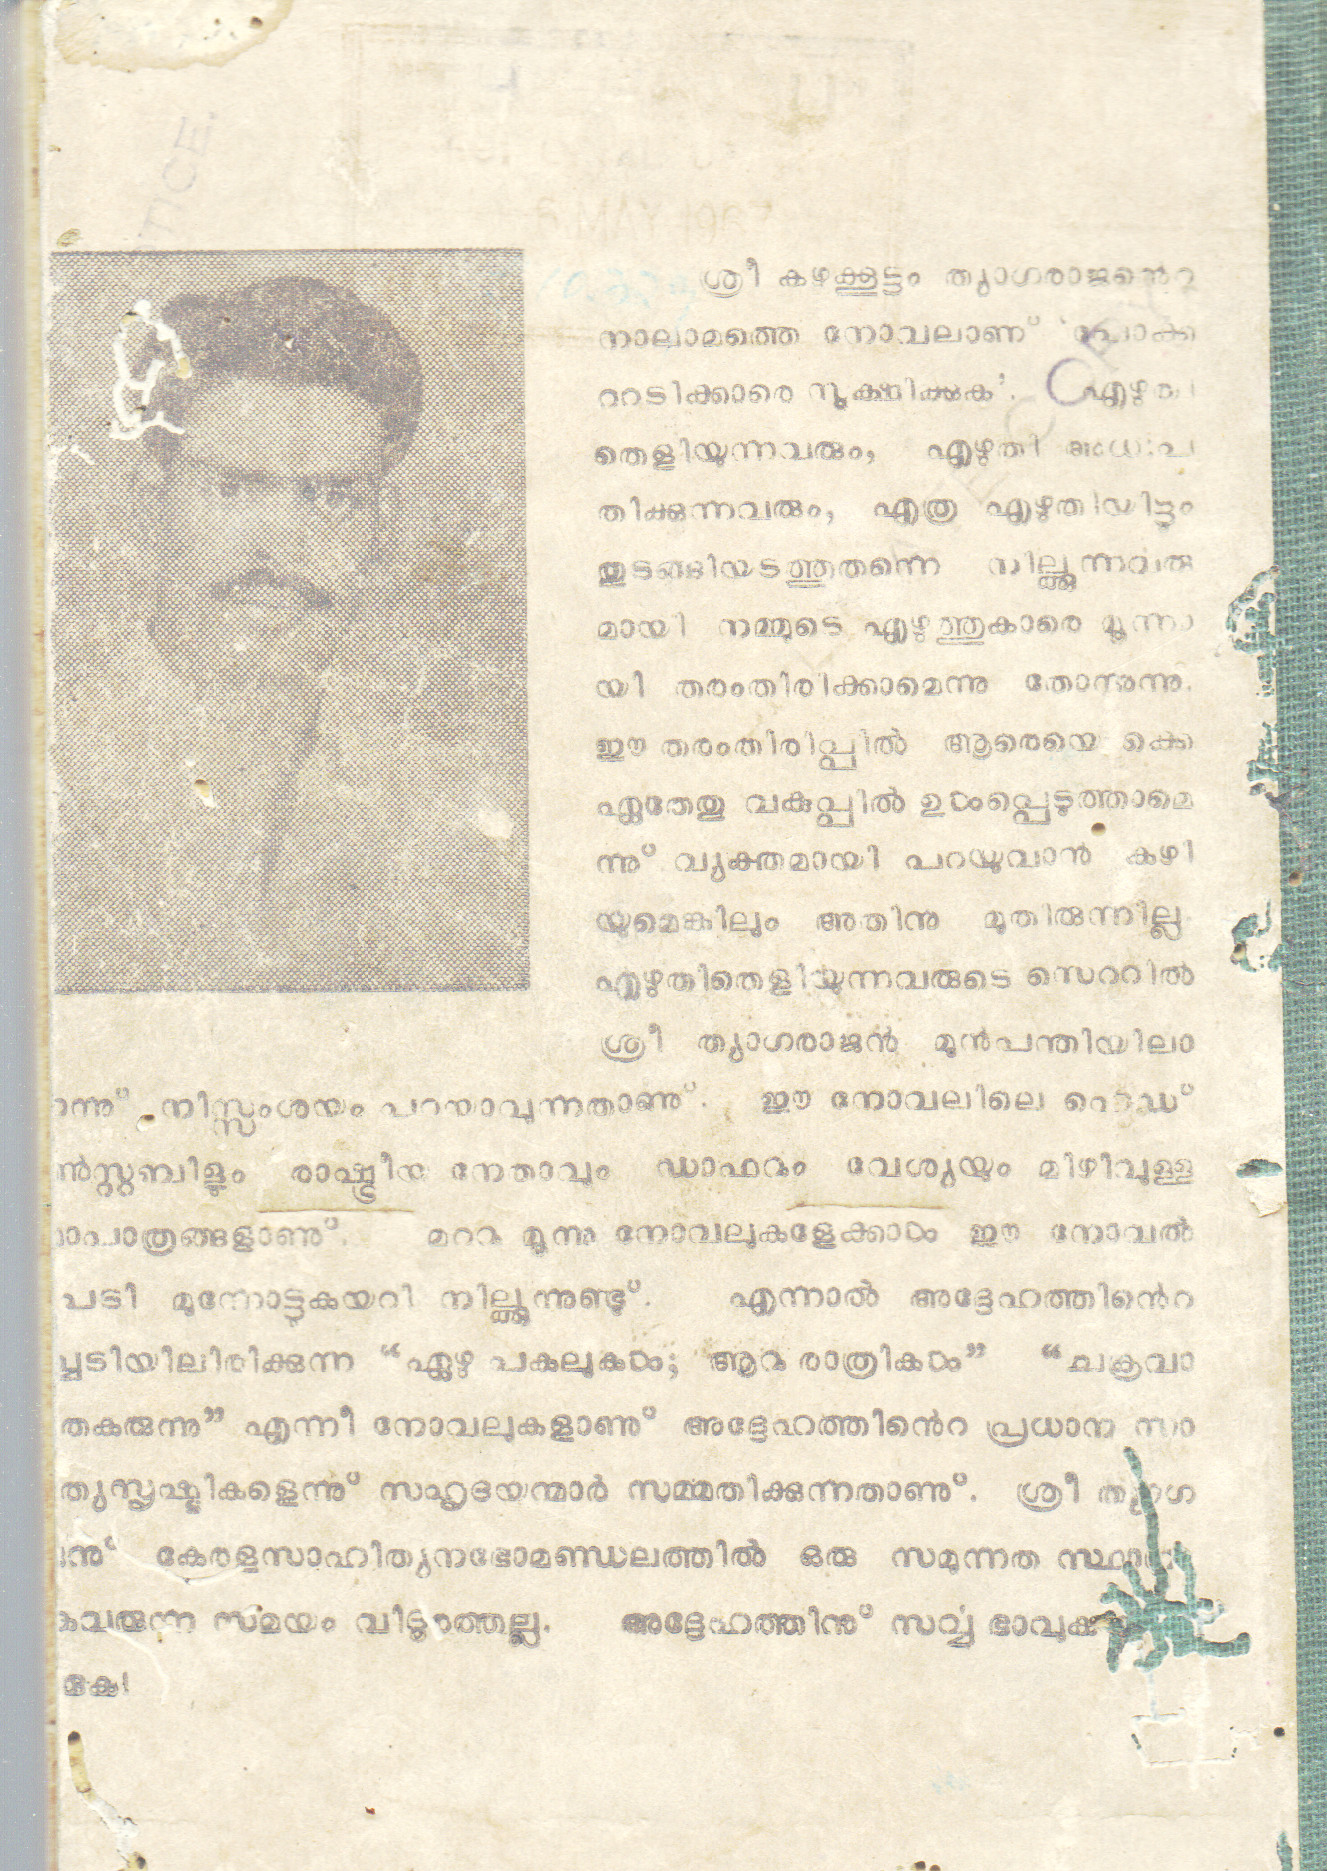 ശ്രീ കഴക്കൂട്ടം ത്യാഗരാജൻെറ
നാലാമത്തെ നോവലാണ് 'പോക്ക
ററടിക്കാരെ സൂക്ഷിക്കുക'. എഴുതി
തെളിയുന്നവരും, എഴുതി അധഃപ
തിക്കുന്നവരും, എത്ര എഴുതിയിട്ടും
തുടങ്ങിയടത്തുതന്നെ നില്ക്കുന്നവരു
മായി നമ്മുടെ എഴുത്തുകാരെ മൂന്നാ
യി തരംതിരിക്കാമെന്നു തോന്നുന്നു.
ഈ തരംതിരിപ്പിൽ ആരെയെ ക്കെ
ഏതേതു വകുപ്പിൽ ഉൾപ്പെടുത്താമെ
ന്നു് വ്യക്തമായി പറയുവാൻ കഴി
യുമെങ്കിലും അതിനു മുതിരുന്നില്ല
എഴുതിതെളിയുന്നവരുടെ സെററിൽ
ശ്രീ ത്യാഗരാജൻ മുൻപന്തിയിലാ
ന്നു് നിസ്സംശയം പറയാവുന്നതാണു്. ഈ നോവലിലെ ഹെഡ്
ൻസ്റ്റബിളും രാഷ്ട്രീയ നേതാവും ഡാഫറും വേശ്യയും മിഴിവുള്ള
ാപാത്രങ്ങളാണു്. മററു മൂന്നു നോവലുകളേക്കാൾ ഈ നോവൽ
പടി മുന്നോട്ടുകയറി നില്ക്കുന്നുണ്ടു്. എന്നാൽ അദ്ദേഹത്തിൻെറ
പ്പടിയിലിരിക്കുന്ന "ഏഴു പകലുകൾ; ആറു രാത്രികൾ" "ചക്രവാ
തകരുന്നു" എന്നീ നോവലുകളാണു് അദ്ദേഹത്തിൻെറ പ്രധാന സാ
ത്യസൃഷ്ടികളെന്നു് സഹൃദയന്മാർ സമ്മതിക്കുന്നതാണു്. ശ്രീ ത്യാഗ
നു് കേരളസാഹിത്യനഭോമണ്ഡലത്തിൽ ഒരു സമുന്നത സ്ഥാനം
കവരുന്ന സമയം വിദൂരത്തല്ല. അദ്ദേഹത്തിനു് സർവ്വ ഭാവുക